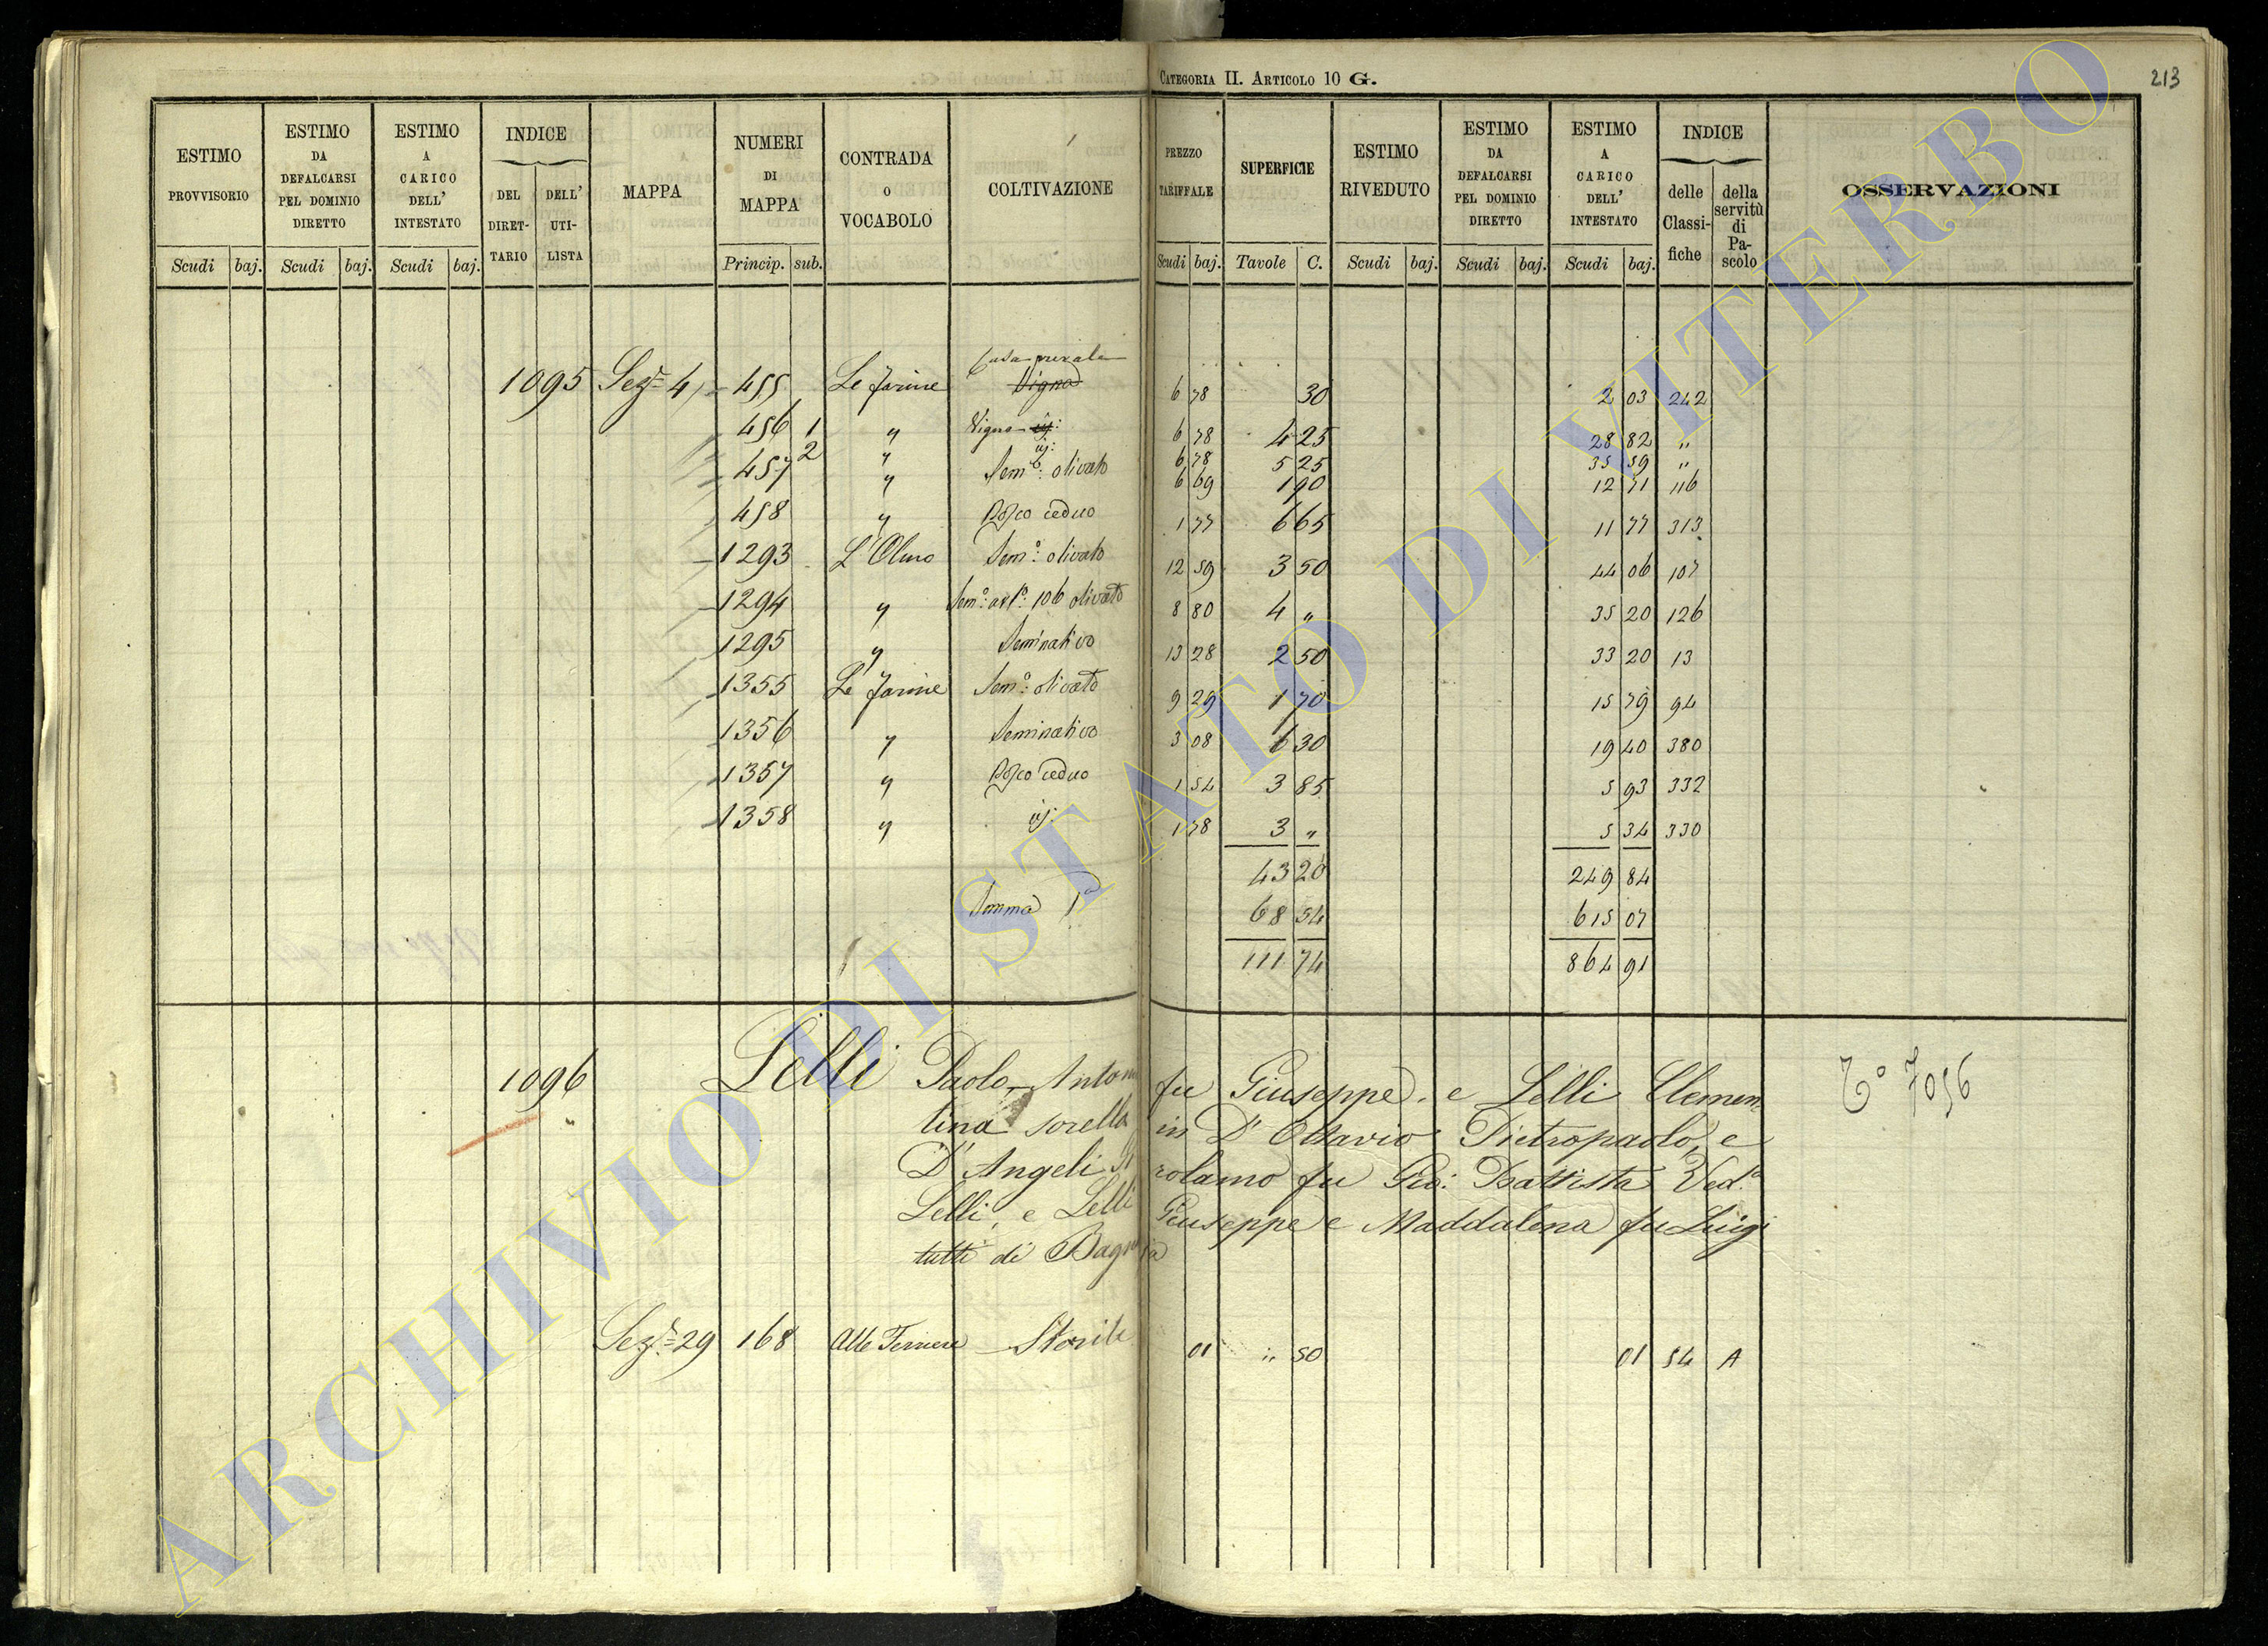 CATEGORIA II. ARTICOLO 10 G.
213
ESTIMO PROVVISORIO
ESTIMO DA DEFALCARSI PEL DOMINIO DIRETTO
ESTIMO A CARICO DELL' INTESTATO
INDICE
DEL DIRETTARIO
DELL' UTILISTA
MAPPA
NUMERI DI MAPPA
CONTRADA O VOCABOLO
COLTIVAZIONE
PREZZO TARIFFALE
SUPERFICIE
ESTIMO RIVEDUTO
ESTIMO DA DEFALCARSI PEL DOMINIO DIRETTO
ESTIMO A CARICO DELL' INTESTATO
INDICE
delle Classifiche
della servitù di Pascolo
OSSERVAZIONI
Scudi baj. Scudi baj. Scudi baj. Princip. sub. Scudi baj. Tavole C. Scudi baj. Scudi baj. Scudi baj.
Casa rurale
1095 Sez.e 4 455 Le Farine Vigna 6 78 30 2 03 242
456 1 " Vigna ij: 6 78 4 25 28 82 "
2 " ij: 6 78 5 25 35 59 "
457 " Sem.o: olivato 6 69 1 90 12 71 116
458 " Bosco ceduo 1 77 6 65 11 77 313
1293 L'Olmo Sem.o: olivato 12 59 3 50 44 06 107
1294 " Sem.o: ar.to: 106 olivato 8 80 4 " 35 20 126
1295 " Seminativo 13 28 2 50 33 20 13
1355 Le Farine Sem.o: olivato 9 29 1 70 15 79 94
1356 " Seminativo 3 08 6 30 19 40 380
1357 " Bosco ceduo 1 54 3 85 5 93 332
1358 " ij: 1 78 3 " 5 34 330
43 20 249 84
Somma 1a 68 54 615 07
111 74 864 91
1096 Lelli Paolo, Antonio fu Giuseppe, e Lelli Clemen
tina sorella in D'Ottavio Pietropaolo, e
D'Angeli Girolamo fu Gio: Battista Ved.o
Lelli, e Lelli Giuseppe e Maddalena fu Luigi
tutti di Bagnaia
T.o 7056
Sez.e 29 168 Alle Ferriere Sterile 01 " 50 01 54 A
ARCHIVIO DI STATO DI VITERBO